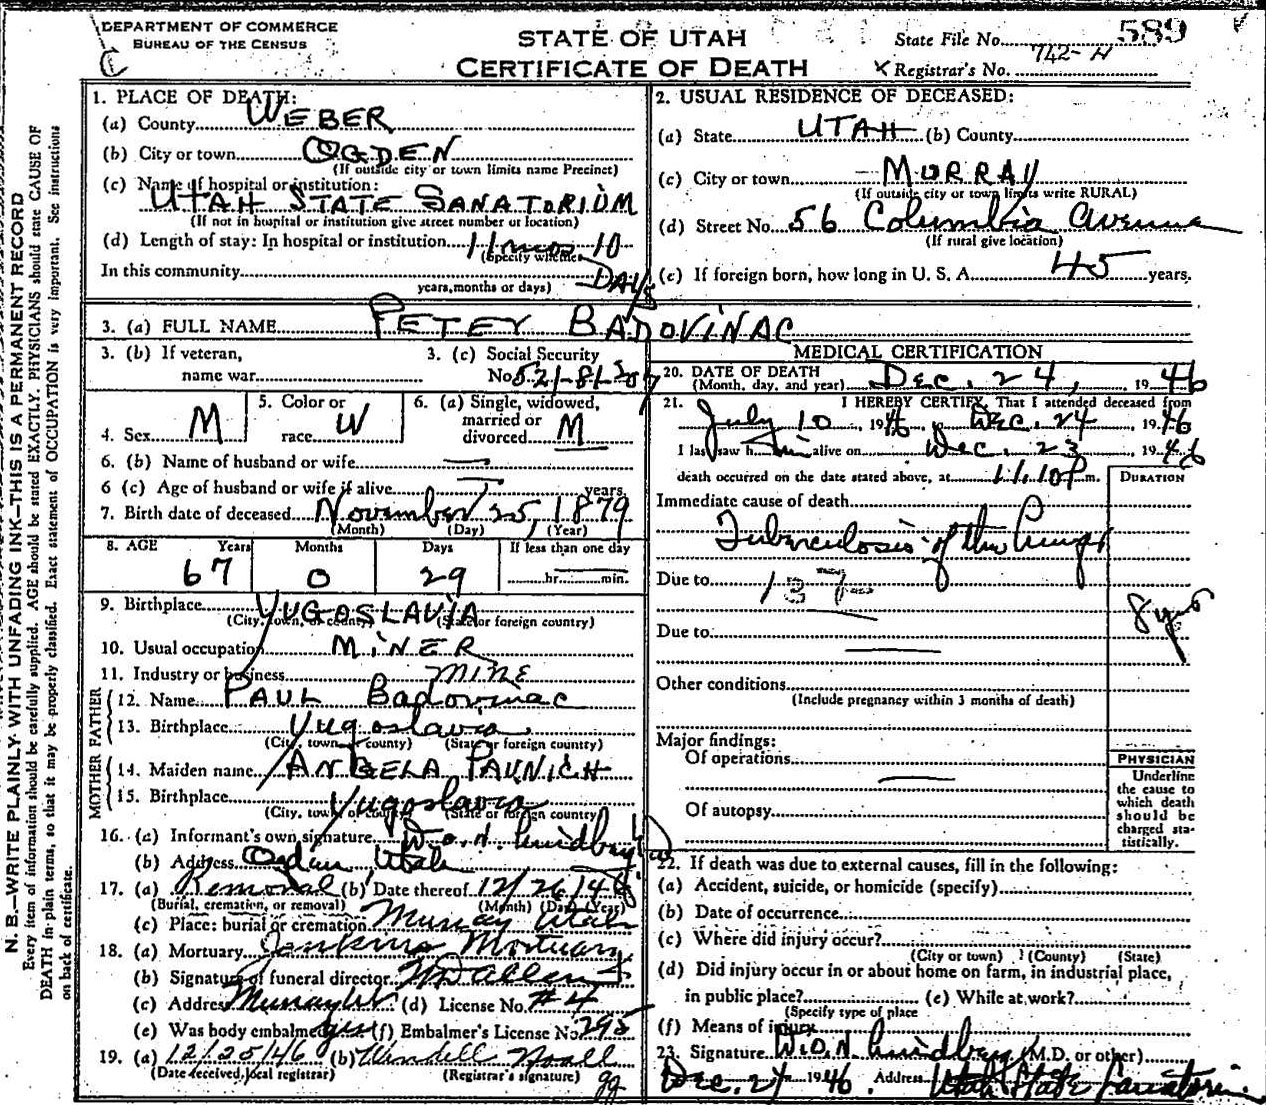 DEPARTMENT OF COMMERCE
BUREAU OF THE CENSUS
C
STATE OF UTAH
CERTIFICATE OF DEATH
State File No. 589
742-H
X Registrar's No.
N. B.—WRITE PLAINLY WITH UNFADING INK—THIS IS A PERMANENT RECORD
Every item of information should be carefully supplied. AGE should be stated EXACTLY. PHYSICIANS should state CAUSE OF
DEATH in plain terms, so that it may be properly classified. Exact statement of OCCUPATION is very important. See instructions
on back of certificate.
1. PLACE OF DEATH:
(a) County WEBER
(b) City or town OGDEN
(If outside city or town limits name Precinct)
(c) Name of hospital or institution:
UTAH STATE SANATORIUM
(If not in hospital or institution give street number or location)
(d) Length of stay: In hospital or institution 11 mos 10
(Specify whether
In this community DAYS
years, months or days)
2. USUAL RESIDENCE OF DECEASED:
(a) State UTAH (b) County
(c) City or town MURRAY
(If outside city or town limits write RURAL)
(d) Street No. 56 Columbia Avenue
(If rural give location)
(e) If foreign born, how long in U. S. A. 45 years.
3. (a) FULL NAME PETEY BADOVINAC
3. (b) If veteran,
name war
3. (c) Social Security
No.
4. Sex M
5. Color or
race W
6. (a) Single, widowed,
married or
divorced M
6. (b) Name of husband or wife —
6 (c) Age of husband or wife if alive — years
7. Birth date of deceased November 25, 1879
(Month) (Day) (Year)
8. AGE Years Months Days If less than one day
67 0 29 hr. min.
9. Birthplace YUGOSLAVIA
(City, town, or county) (State or foreign country)
10. Usual occupation MINER
11. Industry or business MINE
FATHER
12. Name PAUL Badovinac
13. Birthplace Yugoslavia
(City, town or county) (State or foreign country)
MOTHER
14. Maiden name ANGELA PAUNICH
15. Birthplace Yugoslavia
(City, town or county) (State or foreign country)
16. (a) Informant's own signature W.O.N. Lindberg
(b) Address Ogden Utah
17. (a) Removal (b) Date thereof 12/26/46
(Burial, cremation, or removal) (Month) (Day) (Year)
(c) Place: burial or cremation Murray Utah
18. (a) Mortuary Jenkins Mortuary
(b) Signature of funeral director
(c) Address Murray Ut (d) License No. #4
(e) Was body embalmed yes (f) Embalmer's License No. 295
19. (a) 12/25/46 (b) Wendell Noall
(Date received, local registrar) (Registrar's signature)
gg
MEDICAL CERTIFICATION
20. DATE OF DEATH
(Month, day, and year) Dec. 24, 1946
21. I HEREBY CERTIFY, That I attended deceased from
July 10, 1946, Dec. 24, 1946
I last saw him alive on Dec. 23, 1946
death occurred on the date stated above, at 11.10P m.
DURATION
Immediate cause of death
Tuberculosis of the lungs
8 yrs
Due to 137
Due to: —
Other conditions
(Include pregnancy within 3 months of death)
Major findings:
Of operations
—
Of autopsy
PHYSICIAN
Underline
the cause to
which death
should be
charged sta-
tistically.
22. If death was due to external causes, fill in the following:
(a) Accident, suicide, or homicide (specify)
(b) Date of occurrence
(c) Where did injury occur?
(City or town) (County) (State)
(d) Did injury occur in or about home on farm, in industrial place,
in public place? (e) While at work?
(Specify type of place
(f) Means of injury
23. Signature W.O.N. Lindberg (M.D. or other)
Dec. 27 1946. Address Utah State Sanatorium